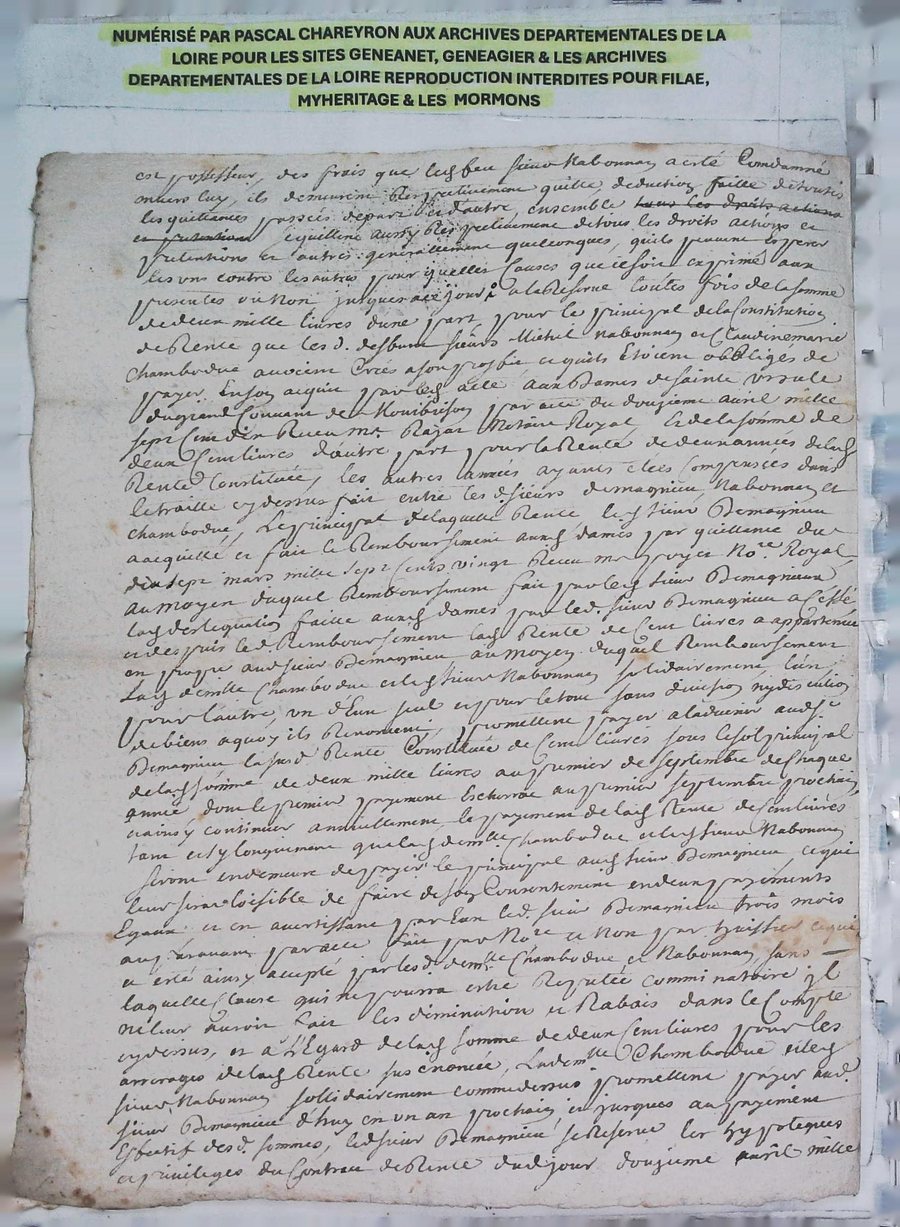 NUMÉRISÉ PAR PASCAL CHAREYRON AUX ARCHIVES DEPARTEMENTALES DE LA
LOIRE POUR LES SITES GENEANET, GENEAGIER & LES ARCHIVES
DEPARTEMENTALES DE LA LOIRE REPRODUCTION INTERDITES POUR FILAE,
MYHERITAGE & LES MORMONS
est possesseur, des frais que led feu sieur Nabonnan a esté Condamné
envers luy, ils demeurent Respectivement quitte deduction faitte de toutes
les quittances passées de part et d'autre ensemble tous les droits actions
et pretentions equittent aussy Respectivement de tous les droits actions et
pretentions et autres generallement quelconques, quils peuvent esperer
les uns contre les autres pour quelles Causes que ce soit exprimé aux
presentes ou Non jusques a ce jour a la Reserve toutes fois de la somme
de deux mille livres d'une part pour le principal de la Constitution
de Rente que les d. deffunts sieurs Michel Nabonnan et Claudine marie
Chambodue avoient Crées a son proffit et quils Etoient obbligés de
payer En son acquit par led acte aux Dames de sainte Ursule
du grand Couvant de Montbrison par acte du douzieme avril mille
sept Cent dix Receu Me Razat Notaire Royal, Et de la somme de
deux Cent livres d'autre part pour la Rente de deux années de lad
Rente Constituée, les autres années ayants étées Compensées dans
le traitté cy dessus fait entre les d sieurs demagnieu, Nabonnan et
chambodue, Le principal de laquelle Rente led sieur Demagnieu
a acquitté et fait le Remboursement auxd dames par quittance du
dix sept mars mille sept Cents vingt Receu me poyet Nore Royal
au moyen duquel Remboursement fait par led sieur Demagnieux
lad delegation faitte auxd dames par led. sieur Demagnieu a Cessé
et depuis led Remboursement lad Rente de Cent livres a appartenue
en propre aud sieur Demagnieu au moyen duquel Remboursement
Lad demlle Chambodue et led sieur Nabonnan solidairement, l'un
pour l'autre, un d'Eux seul et pour le tout sans division ny discution
de biens a quoy ils Renoncent, promettent payer a l'advenir aud sr
Demagnieu la susd Rente Constituée de Cent livres sous le sol principal
de lad somme de deux mille livres au premier de septembre de Chaque
année dont le premier payement Escherra au premier septembre prochain
et ainsy continuer annuellement, le payement de lad Rente de Cent livres
tant et sy longuement que lad demlle Chambodue et led sieur Nabonnan
seront en demeure de payer le principal aud sieur Demagnieu, ce qui
leur sera loisible de faire de son Consentement en deux payements
Egaux et en avertissant par Eux led. sieur Demagnieu trois mois
auparavant par acte fait par Nore et Non par huissier ce qui
a été ainsy accepté par lesd. demlle Chambodue et Nabonnan, sans
laquelle Clause qui ne pourra estre Reputée comminatoire il
ne leur auroit fait les diminution et Rabais dans le Compte
cy dessus, et a l'Egard de lad somme de deux Cent livres pour les
arrerages de lad Rente sus enoncée, Lademlle Chambodue et led
sieur Nabonnan sollidairement comme dessus promettent payer aud.
sieur Demagnieu d'huy en un an prochain et jusques au payement
Effectif desd. sommes, led sieur Demagnieu se Reserve les hypoteques
et privileges du Contrat de Rente dud jour douzieme avril mille